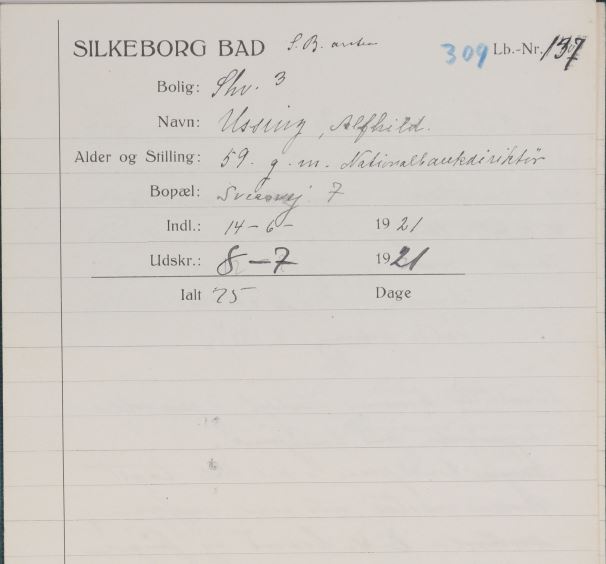 SILKEBORG BAD S. B. 309 Lb.-Nr. 137
Bolig: Shv. 3
Navn: Ussing, Alfhild.
Alder og Stilling: 59. g. m. Nationalbankdirektör
Bopæl: 7
Indl.: 14-6- 1921
Udskr.: 8-7 1921
Ialt 25 Dage